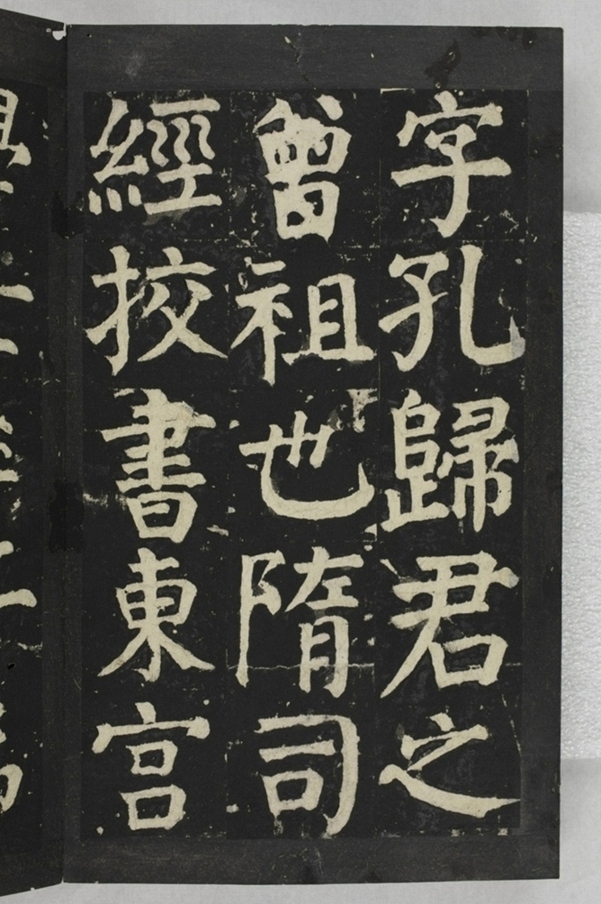 字孔歸君之
曾祖也隋司
經挍書東宮